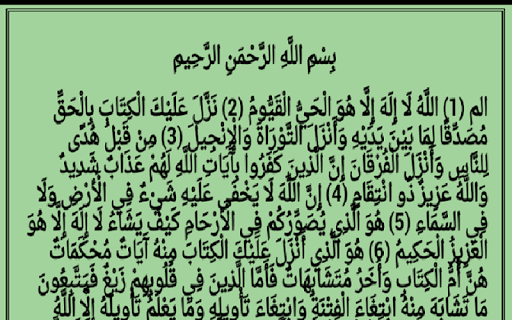 بِسْمِ اللَّهِ الرَّحْمَنِ الرَّحِيمِ
الم (1) اللَّهُ لَا إِلَهَ إِلَّا هُوَ الْحَيُّ الْقَيُّومُ (2) نَزَّلَ عَلَيْكَ الْكِتَابَ بِالْحَقِّ
مُصَدِّقًا لِمَا بَيْنَ يَدَيْهِ وَأَنْزَلَ التَّوْرَاةَ وَالْإِنْجِيلَ (3) مِنْ قَبْلُ هُدًى
لِلنَّاسِ وَأَنْزَلَ الْفُرْقَانَ إِنَّ الَّذِينَ كَفَرُوا بِآَيَاتِ اللَّهِ لَهُمْ عَذَابٌ شَدِيدٌ
وَاللَّهُ عَزِيزٌ ذُو انْتِقَامٍ (4) إِنَّ اللَّهَ لَا يَخْفَى عَلَيْهِ شَيْءٌ فِي الْأَرْضِ وَلَا
فِي السَّمَاءِ (5) هُوَ الَّذِي يُصَوِّرُكُمْ فِي الْأَرْحَامِ كَيْفَ يَشَاءُ لَا إِلَهَ إِلَّا هُوَ
الْعَزِيزُ الْحَكِيمُ (6) هُوَ الَّذِي أَنْزَلَ عَلَيْكَ الْكِتَابَ مِنْهُ آَيَاتٌ مُحْكَمَاتٌ
هُنَّ أُمُّ الْكِتَابِ وَأُخَرُ مُتَشَابِهَاتٌ فَأَمَّا الَّذِينَ فِي قُلُوبِهِمْ زَيْغٌ فَيَتَّبِعُونَ
مَا تَشَابَهَ مِنْهُ ابْتِغَاءَ الْفِتْنَةِ وَابْتِغَاءَ تَأْوِيلِهِ وَمَا يَعْلَمُ تَأْوِيلَهُ إِلَّا اللَّهُ